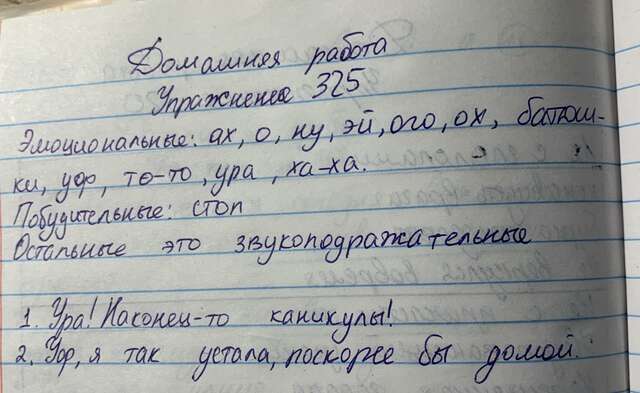 Домашняя работа
Упражнение 325
Эмоциональные: ах, о, ну, эй, ого, ох, батюш-
ки, уф, то-то, ура, ха-ха.
Побудительные: стоп
Остальные это звукоподражательные
1. Ура! Наконец-то каникулы!
2. Уф, я так устала, поскорже бы домой.